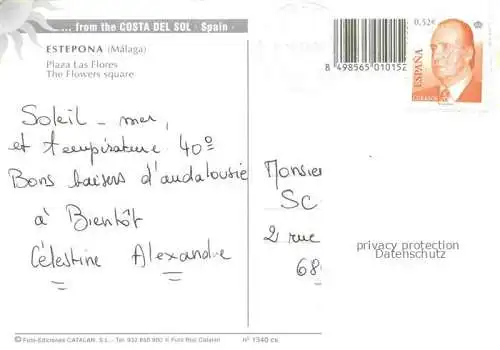 ... from the COSTA DEL SOL · Spain ·
ESTEPONA (Málaga)
Plaza Las Flores
The Flowers square
8 498565 010152
0,52€
ESPAÑA
CORREOS
Soleil - mer,
et température 40°
Bons baisers d'andalousie
à Bientôt
Célestine Alexandre
Monsieur
SC
2 rue
68
privacy protection
Datenschutz
© Foto-Ediciones CATALAN, S.L. - Tel. 932 850 800 © Foto Roc Catalan
nº 1340 cs